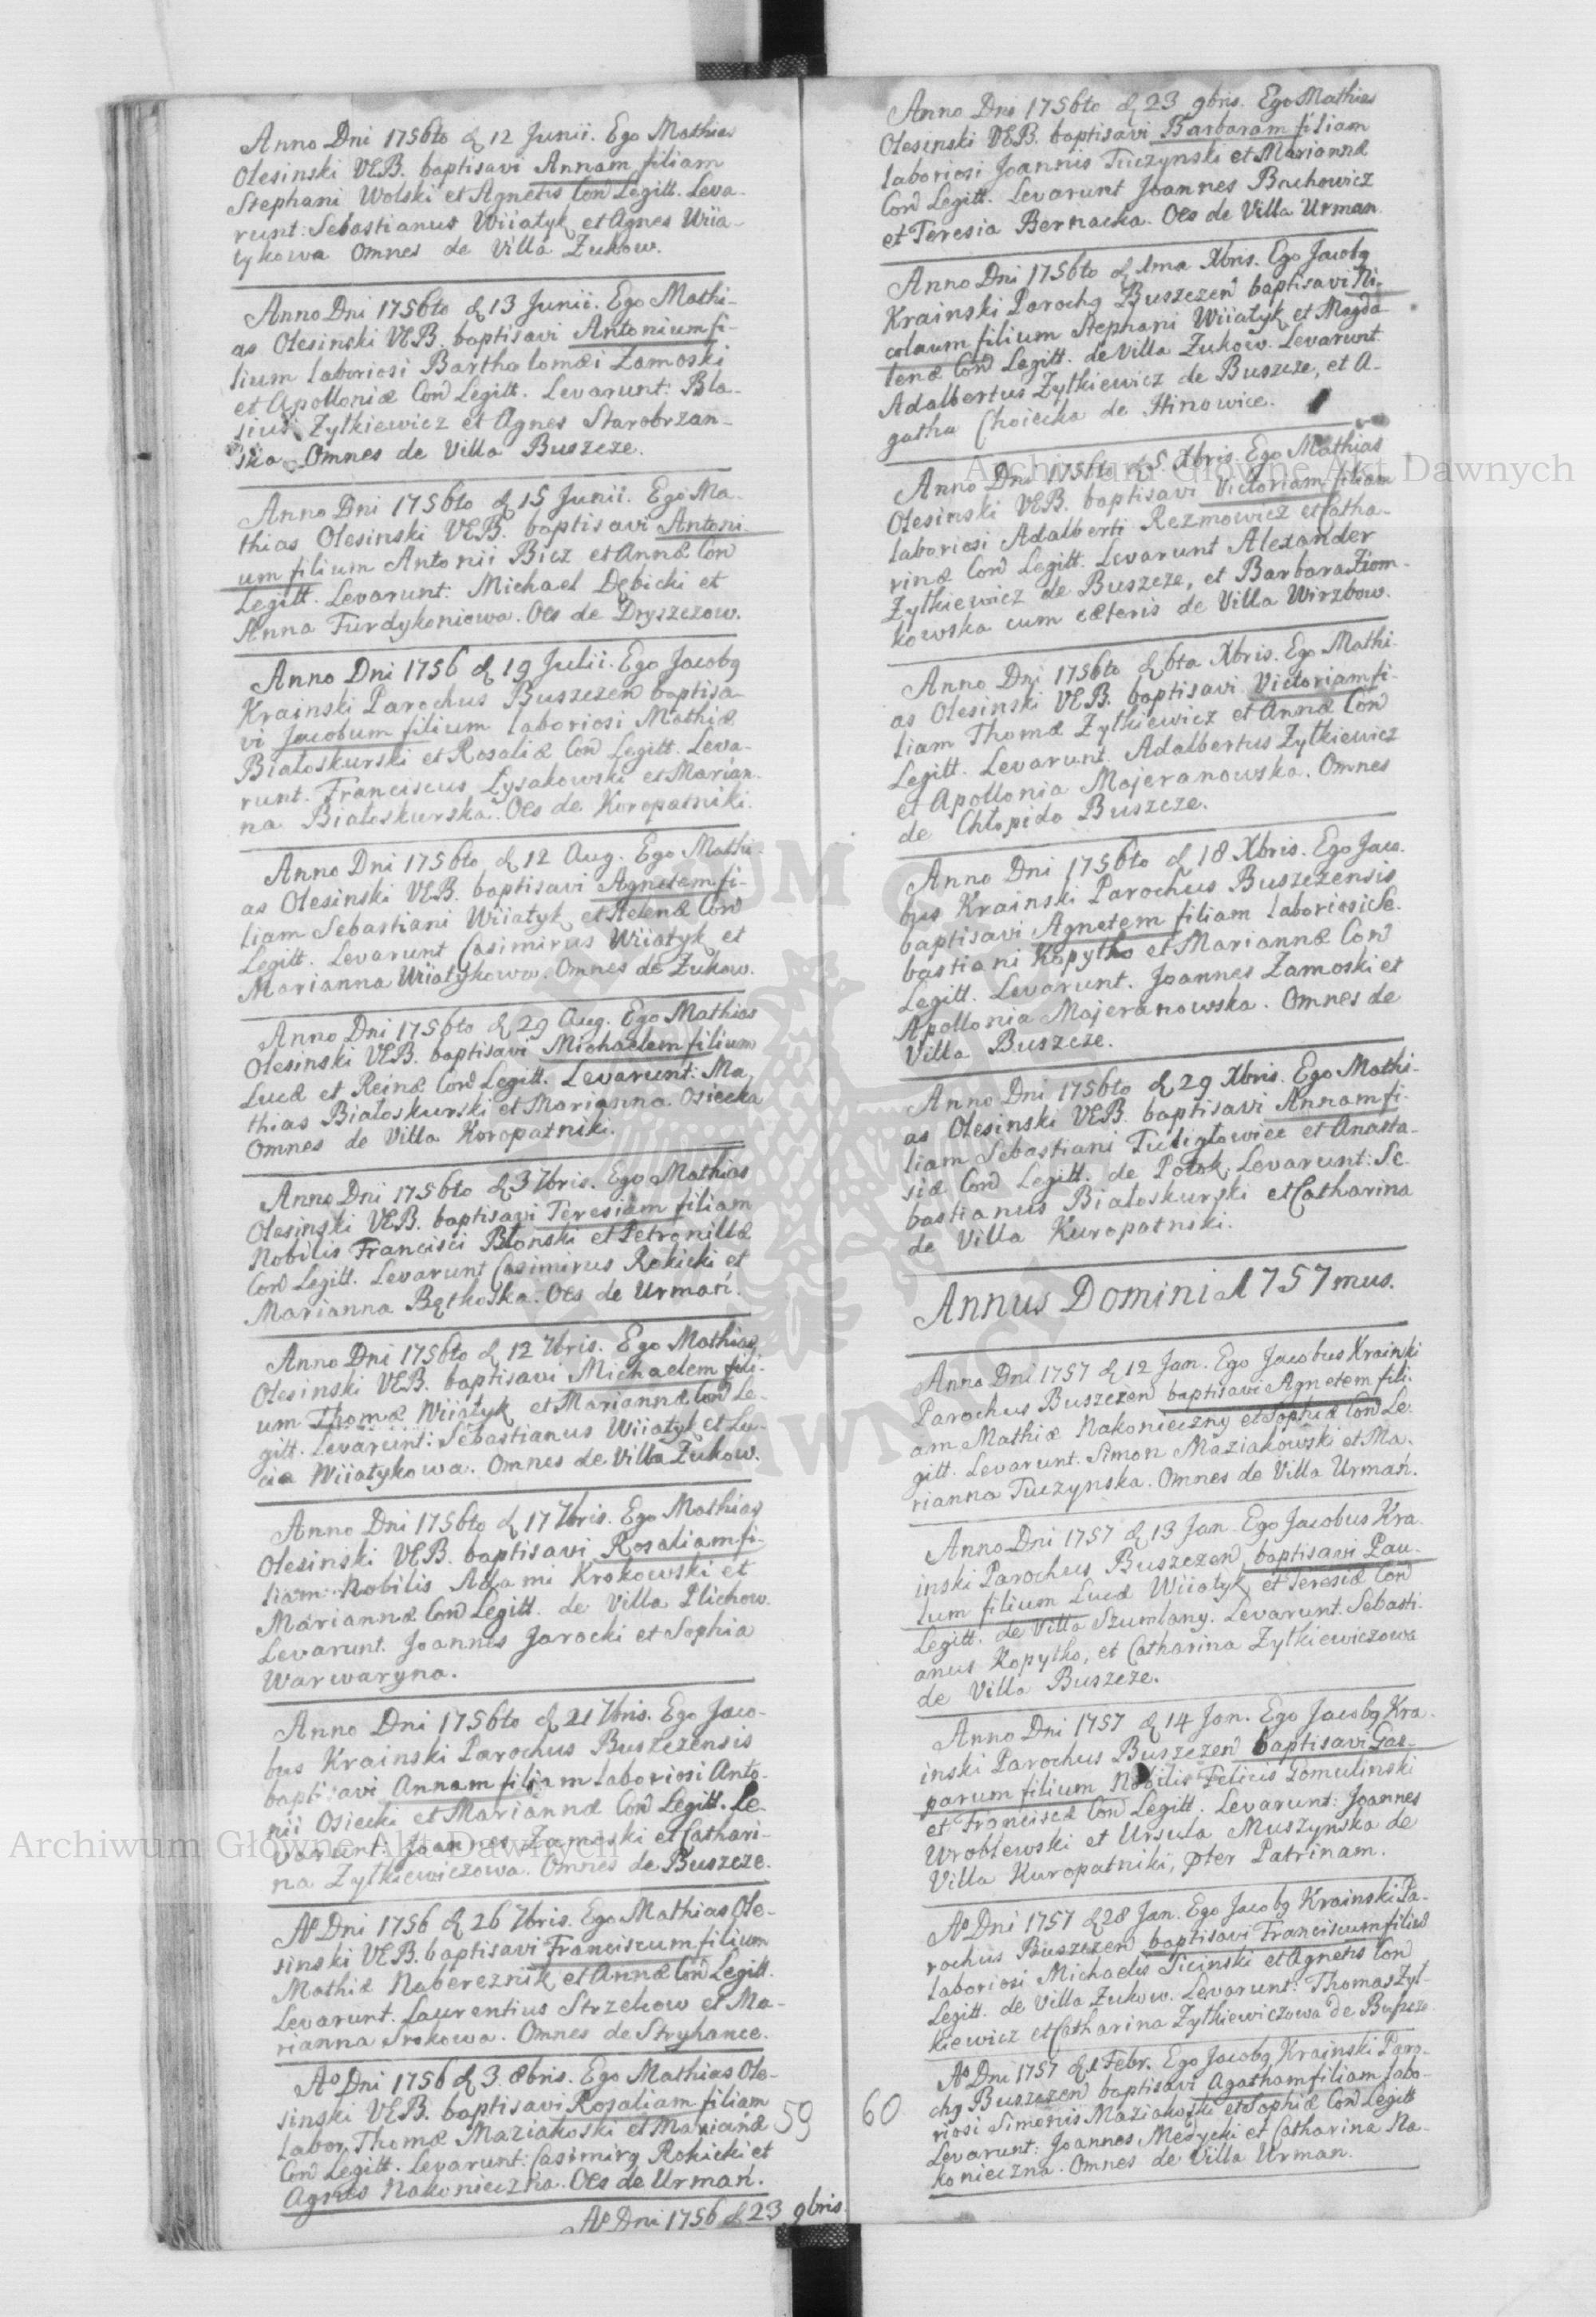 Anno Dni 1756to d 12 Junii. Ego Mathias
Olesinski VEB. baptisavi Annam filiam
Stephani Wolski et Agnetis Cond Legitt. Leva-
runt: Sebastianus Wiiatyk et Agnes Wiia-
tykowa Omnes de Villa Zukow.
Anno Dni 1756to d 13 Junii. Ego Mathi-
as Olesinski VEB. baptisavi Antonium fi-
lium laboriosi Bartholomæi Zamoski
et Apolloniæ Cond Legitt. Levarunt: Bla-
sius Zytkiewicz et Agnes Starobrzan-
ska Omnes de Villa Buszcze.
Anno Dni 1756to d 15 Junii. Ego Ma-
thias Olesinski VEB. baptisavi Antoni-
um filium Antonii Bicz et Annæ Con
Legitt. Levarunt: Michael Dębicki et
Anna Furdykoniowa. Oes de Dryszczow.
Anno Dni 1756 d 19 Julii. Ego Jacobg
Krainski Parochus Buszczen baptisa-
vi Jacobum filium laboriosi Mathiæ
Białoskurski et Rosaliæ Cond Legitt. Leva-
runt. Franciscus Lysakowski et Marian-
na Białoskurska. Oes de Koropatniki.
Anno Dni 1756to d 12 Aug. Ego Mathi-
as Olesinski VEB. baptisavi Agnetem fi-
liam Sebastiani Wiiatyk et Helenæ Cond
Legitt. Levarunt Casimirus Wiiatyk et
Marianna Wiiatykowa. Omnes de Zukow.
Anno Dni 1756to d 29 Aug. Ego Mathias
Olesinski VEB. baptisavi Michaelem filium
Lucæ et Reinæ Cond Legitt. Levarunt: Ma-
thias Białoskurski et Marianna Osiecka
Omnes de Villa Koropatniki.
Anno Dni 1756to d 3 7bris. Ego Mathias
Olesinski VEB. baptisavi Teresiam filiam
Nobilis Francisci Błonski et Petronillæ
Cond Legitt. Levarunt Casimirus Rokicki et
Marianna Bętkoska. Oes de Urmań.
Anno Dni 1756to d 12 7bris. Ego Mathias
Olesinski VEB. baptisavi Michaelem fili-
um Thomæ Wiiatyk et Mariannæ Cond Le-
gitt. Levarunt: Sebastianus Wiiatyk et Lu-
cia Wiiatykowa. Omnes de Villa Zukow.
Anno Dni 1756to d 17 7bris. Ego Mathias
Olesinski VEB. baptisavi Rosaliam fi-
liam Nobilis Adami Krokowski et
Mariannæ Cond Legitt. de Villa Plichow.
Levarunt. Joannes Jarocki et Sophia
Warwaryna.
Anno Dni 1756to d 21 7bris. Ego Jaco-
bus Krainski Parochus Buszczensis
baptisavi Annam filiam laboriosi Anto-
nii Osiecki et Mariannæ Cond Legitt. Le-
varunt: Joannes Zamoski et Cathari-
na Zytkiewiczowa. Omnes de Buszcze.
Ao Dni 1756 d 26 7bris. Ego Mathias Ole-
sinski VEB. baptisavi Franciscum filium
Mathiæ Nabereznik et Annæ Cond Legitt.
Levarunt. Laurentius Strzelcow et Ma-
rianna Srokowa. Omnes de Stryhance.
Ao Dni 1756 d 3. 8bris. Ego Mathias Ole-
sinski VEB. baptisavi Rosaliam filiam
labor. Thomæ Maziakoski et Mariańæ
Cond Legitt. Levarunt: Casimirg Rokicki et
Agnes Nakonieczna. Oes de Urmań.
Ao Dni 1756 d 23 9bris.
59
Anno Dni 1756to d 23 9bris. Ego Mathias
Olesinski VEB. baptisavi Barbaram filiam
laboriosi Joannis Tuczynski et Mariannæ
Cond Legitt. Levarunt Joannes Bachowicz
et Teresia Bernacka. Oes de Villa Urman.
Anno Dni 1756to d 1ma Xbris. Ego Jacobg
Krainski Parochg Buszczen baptisavi Ni-
colaum filium Stephani Wiiatyk et Magda
lenæ Cond Legitt. de Villa Zukow. Levarunt
Adalbertus Zytkiewicz de Buszcze, et A-
gatha Choiecka de Hinowice.
Anno Dni 1756to d 5 Xbris. Ego Mathias
Olesinski VEB. baptisavi Victoriam filiam
laboriosi Adalberti Rezmowicz et Catha-
rinæ Cond Legitt. Levarunt Alexander
Zytkiewicz de Buszcze, et Barbara Ziom-
kowska cum cæteris de Villa Wirzbow.
Anno Dni 1756to d 6ta Xbris. Ego Mathi-
as Olesinski VEB. baptisavi Victoriam fi-
liam Thomæ Zytkiewicz et Annæ Cond
Legitt. Levarunt. Adalbertus Zytkiewicz
et Apollonia Majeranowska. Omnes
de Chłopido Buszcze.
Anno Dni 1756to d 18 Xbris. Ego Jaco-
bus Krainski Parochus Buszczensis
baptisavi Agnetem filiam laboriosi Se-
bastiani Kopytko et Mariannæ Cond
Legitt. Levarunt. Joannes Zamoski et
Apollonia Majeranowska. Omnes de
Villa Buszcze.
Anno Dni 1756to d 29 Xbris. Ego Mathi-
as Olesinski VEB. baptisavi Annam fi-
liam Sebastiani Tuligłowiec et Anasta-
siæ Cond Legitt. de Potok. Levarunt: Se-
bastianus Białoskurski et Catharina
de Villa Kuropatniki.
Annus Domini 1757mus.
Anno Dni 1757 d 12 Jan. Ego Jacobus Krainski
Parochus Buszczen baptisavi Agnetem fili-
am Mathiæ Nakonieczny et Sophiæ Cond Le-
gitt. Levarunt. Simon Maziakowski et Ma-
rianna Tuczynska. Omnes de Villa Urmań.
Anno Dni 1757 d 13 Jan. Ego Jacobus Kra-
inski Parochus Buszczen baptisavi Pau-
lum filium Lucæ Wiiatyk et Teresiæ Cond
Legitt. de Villa Szumlany. Levarunt. Sebasti-
anus Kopytko, et Catharina Zytkiewiczowa
de Villa Buszcze.
Anno Dni 1757 d 14 Jan. Ego Jacobg Kra-
inski Parochus Buszczen baptisavi Gas-
parum filium Nobilis Felicis Gomulinski
et Franciscæ Cond Legitt. Levarunt: Joannes
Wroblewski et Ursula Muszynska de
Villa Kuropatniki, pter Patrinam.
Ao Dni 1757 d 28 Jan. Ego Jacobg Krainski Pa-
rochus Buszczen baptisavi Franciscum filiu
laboriosi Michaelis Sicinski et Agnetis Cond
Legitt. de Villa Zukow. Levarunt: Thomas Zyt-
kiewicz et Catharina Zytkiewiczowa de Buszcze
Ao Dni 1757 d 1 Febr. Ego Jacobg Krainski Paro-
chg Buszczen baptisavi Agatham filiam labo-
riosi Simonis Maziakoski et Sophiæ Cond Legitt
Levarunt: Joannes Medycki et Catharina Na-
konieczna. Omnes de Villa Urman.
60
Archiwum Główne Akt Dawnych
Archiwum Główne Akt Dawnych